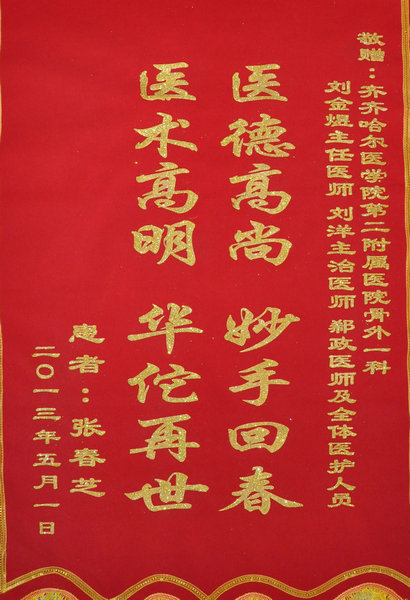 敬赠：齐齐哈尔医学院第二附属医院骨外一科
刘金煜主任医师 刘洋主治医师 郗政医师及全体医护人员
医德高尚 妙手回春
医术高明 华佗再世
患者：张春芝
二〇一三年五月一日